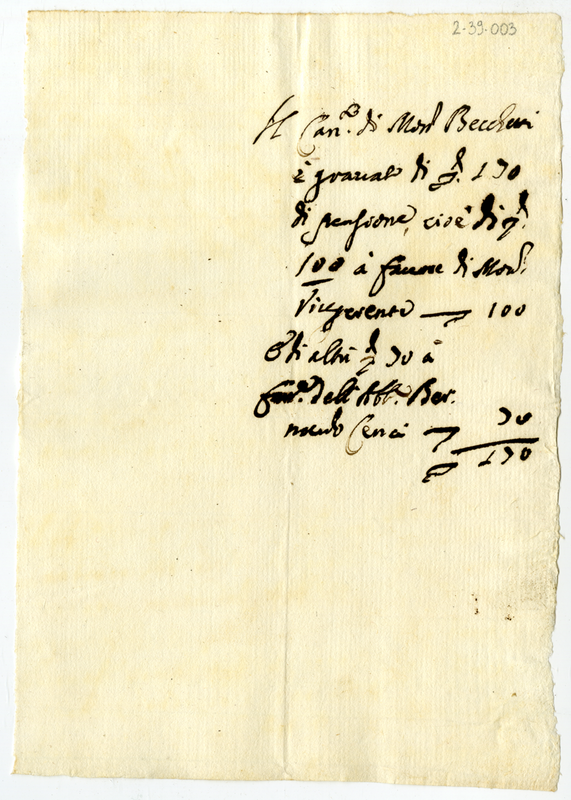 2-39-003
Il Can.to di Mons.r Beccheri
è gravato di ∇. 170
di pensione, cioè di ∇.
100 à favore di Mons.r
Vicegerente — 100
E di altri ∇ 70 à
fav.e dell'Abb.e Ber.
nardo Cenci — 70
∇ 170